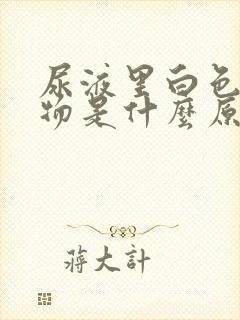 尿液里白色
物是什麼原
蔣大計